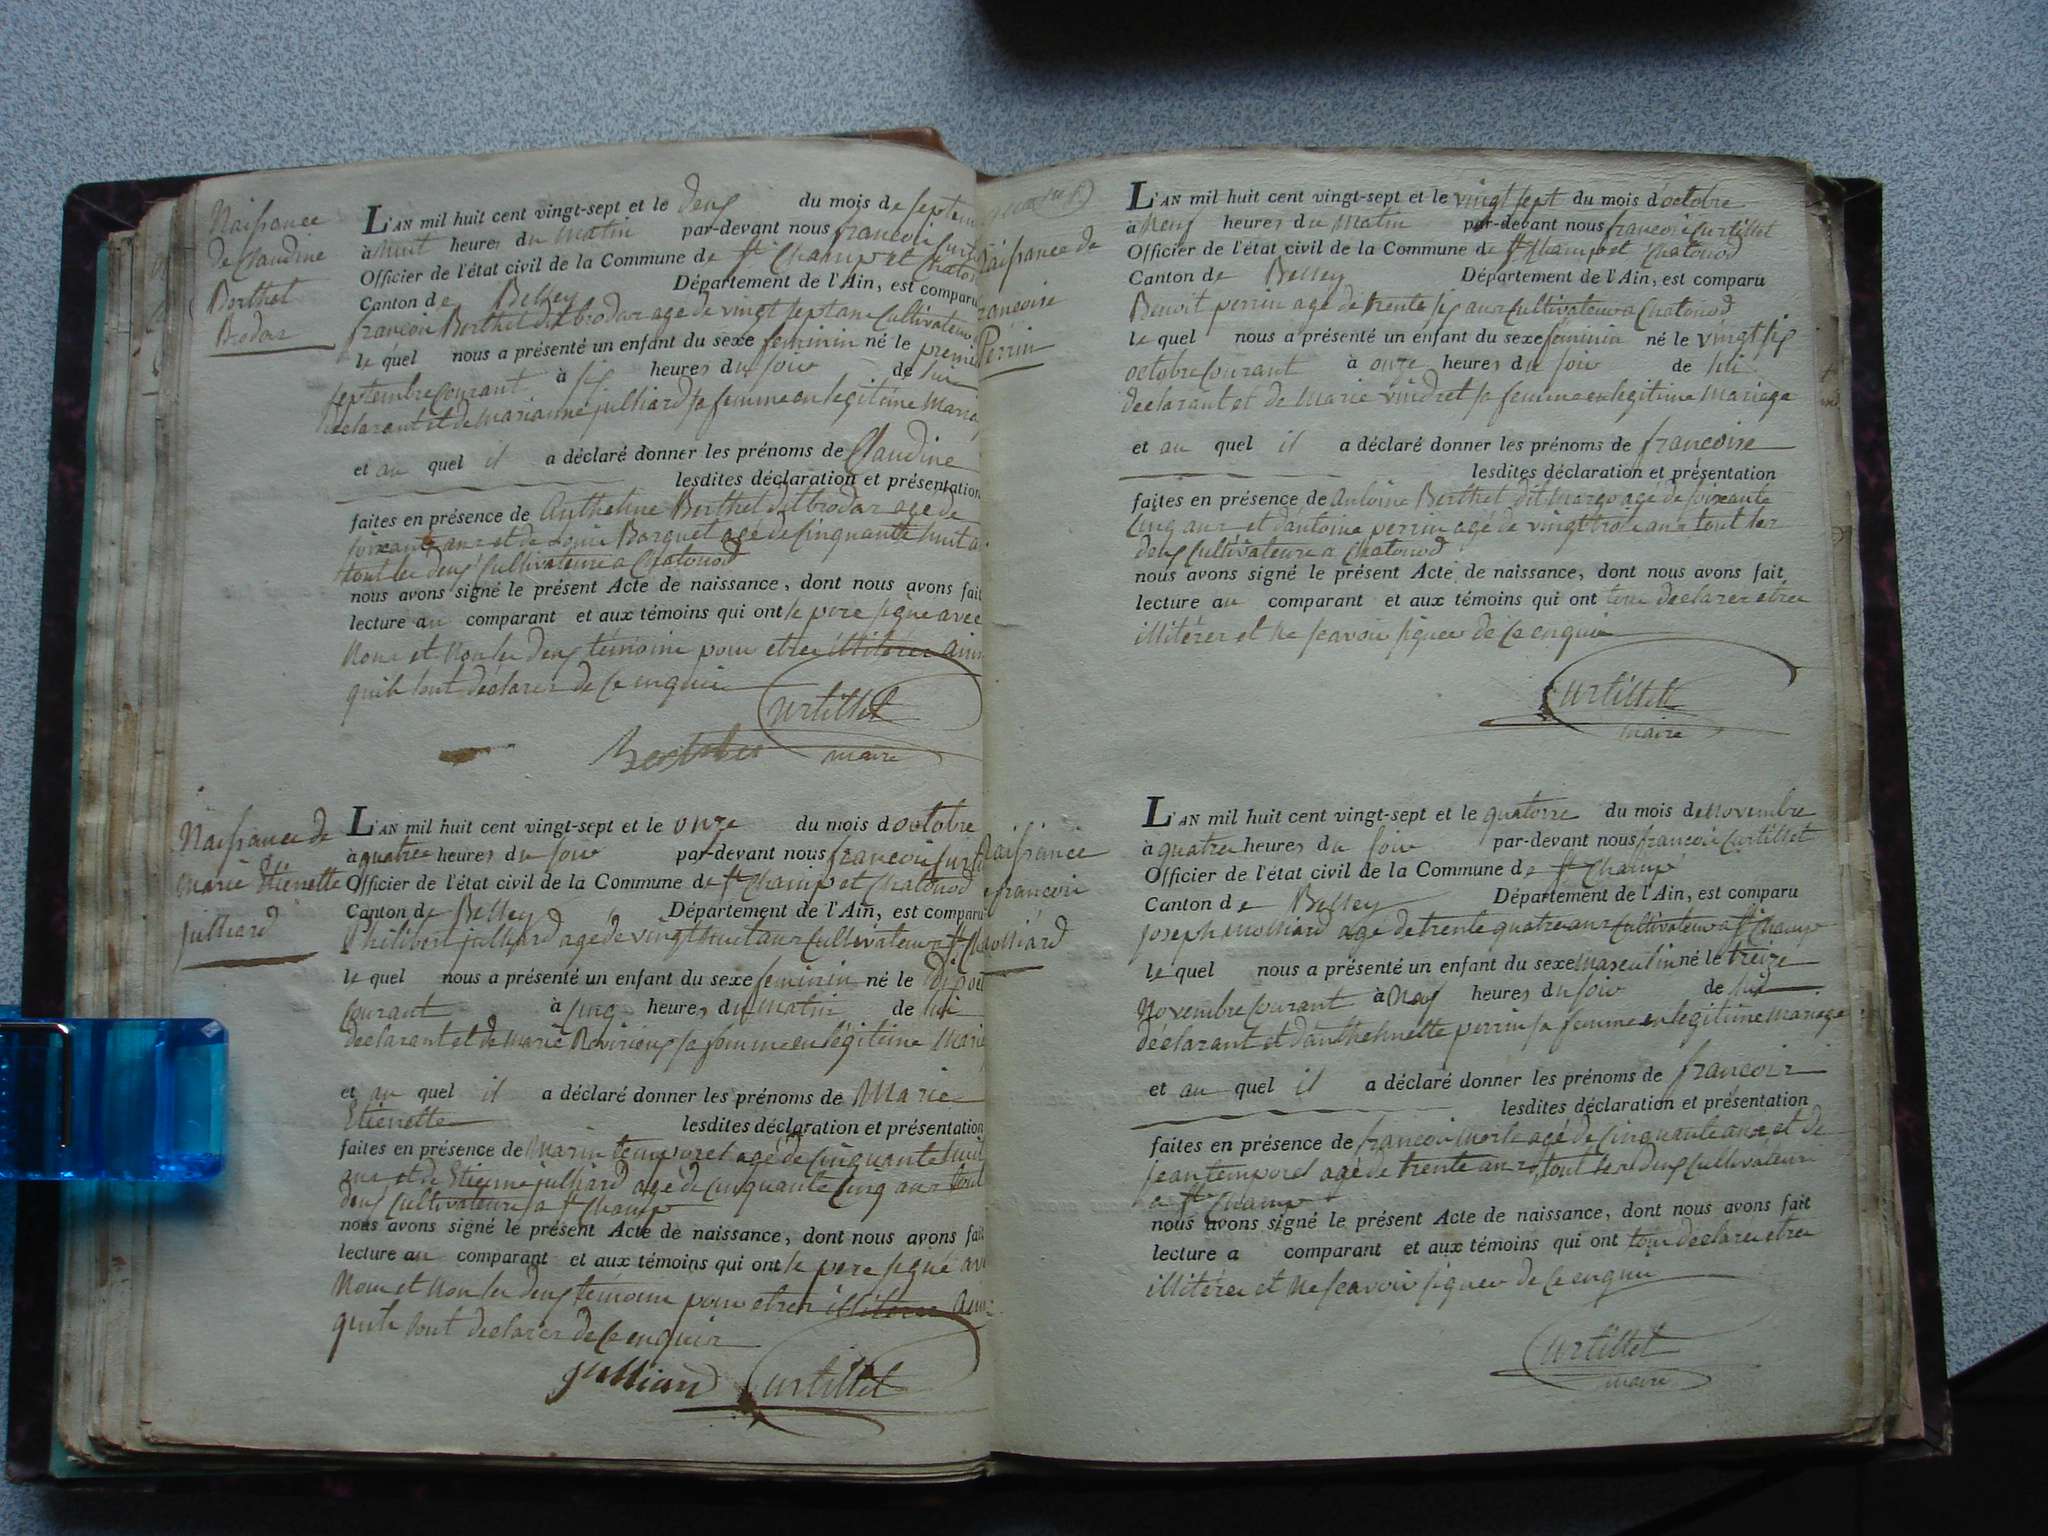 Naissance
de Claudine
Berthet
Brodar
L'AN mil huit cent vingt-sept et le deux du mois de septem
à huit heures du matin par-devant nous francois Curti
Officier de l'état civil de la Commune de St Champ et Chatono
Canton de Belley Département de l'Ain, est comparu
francois Berthet dit brodar age de vingt sept ans Cultivateur
le quel nous a présenté un enfant du sexe feminin né le premie
septembre Courant à six heures du soir de lui
declarant et de marianne julliard sa femme en legitime Maria
et au quel il a déclaré donner les prénoms de Claudine
lesdites déclaration et présentation
faites en présence de Anthelme Berthet dit brodar agé de
soixante ans et de Louis Borquet agé de Cinquante huit a
tout les deux Cultivateurs a Chatonod
nous avons signé le présent Acte de naissance, dont nous avons fait
lecture au comparant et aux témoins qui ont le pere signe avec
Nous et Non les deux témoins pour etres illiteres ainsi
quils l'ont déclarer de Ce enquis
Curtillet
Berthet maire
Naissance de
marie Etienette
julliard
L'AN mil huit cent vingt-sept et le onze du mois d'octobre
à quatre heures du soir par-devant nous francois Curti
Officier de l'état civil de la Commune de St Champ et Chatonod
Canton de Belley Département de l'Ain, est comparu
Philibert julliard age de vingt huit ans Cultivateur a St Ch
le quel nous a présenté un enfant du sexe feminin né le Dix oct
Courant à Cinq heures du matin de lui
declarant et de marie Revirieux sa femme en légitime Maria
et au quel il a déclaré donner les prénoms de Marie
Etienette lesdites déclaration et présentation
faites en présence de Marin temporel agé de Cinquante huit
ans et de Etienne julliard agé de Cinquante Cinq ans tout
deux Cultivateurs a St Champ
nous avons signé le présent Acte de naissance, dont nous avons fait
lecture au comparant et aux témoins qui ont le pere signé av
Nous et Non les deux témoins pour etres illiteres ainsi
quils l'ont declarer de Ce enquis
julliard Curtillet
Naissance de
francoise
Perrin
L'AN mil huit cent vingt-sept et le vingt sept du mois d'octobre
à Neuf heures du Matin par-devant nous francois Curtillet
Officier de l'état civil de la Commune de St Champ et Chatonod
Canton de Belley Département de l'Ain, est comparu
Benoit perrin age de trente six ans Cultivateur a Chatonod
le quel nous a présenté un enfant du sexe feminin né le vingt six
octobre Courant à onze heures du soir de lui
declarant et de Marie vindret sa femme en legitime Mariage
et au quel il a déclaré donner les prénoms de francoise
lesdites déclaration et présentation
faites en présence de antoine Berthet dit margo agé de soixante
Cinq ans et d'antoine perrin agé de vingt trois ans tout les
deux Cultivateurs a Chatonod
nous avons signé le présent Acte de naissance, dont nous avons fait
lecture au comparant et aux témoins qui ont tous declarer etres
illiteres et Ne scavoir signer de Ce enquis
Curtillet
maire
Naissance
francois
molliard
L'AN mil huit cent vingt-sept et le quatorze du mois de Novembre
à quatre heures du soir par-devant nous francois Curtillet
Officier de l'état civil de la Commune de St Champ
Canton de Belley Département de l'Ain, est comparu
joseph molliard age de trente quatre ans Cultivateur a St Champ
le quel nous a présenté un enfant du sexe masculin né le treize
Novembre Courant à Neuf heures du soir de lui
déclarant et d'anthelmette perrin sa femme en legitime mariage
et au quel il a déclaré donner les prénoms de francois
lesdites déclaration et présentation
faites en présence de francois morte agé de Cinquante ans et de
jean temporel agé de trente ans tout les deux Cultivateurs
a St Champ
nous avons signé le présent Acte de naissance, dont nous avons fait
lecture a comparant et aux témoins qui ont tous declarer etres
illiteres et Ne scavoir signer de Ce enquis
Curtillet
maire